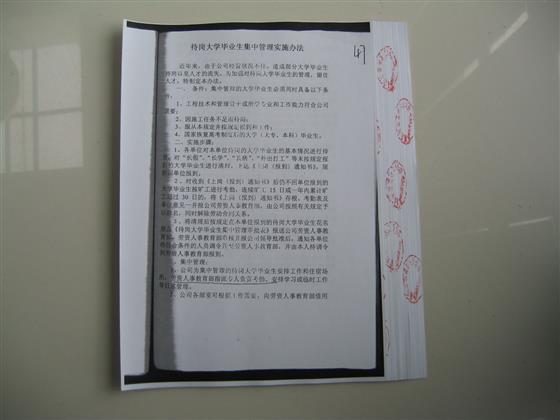 47
待岗大学毕业生集中管理实施办法
近年来，由于公司经营状况不佳，造成部分大学毕业生
待岗以至人才的流失。为加强对待岗大学毕业生的管理，留住
人才，特制定本办法。
一、条件：集中管理的大学毕业生必须同时具备以下条
件：
1、工程技术和管理
专业和工作能力符合公司
需要；
2、因施工任务不足而待岗；
3、服从本规定并按规定
4、国家恢复高考制度后的大学（大专、本科）毕业生。
二、实施步骤：
1、各单位对本单位待岗的大学毕业生的基本情况进行排
查，对“长假”、“长学”、“长病”、“外出打工”等未按规定报
到的大学毕业生进行清理，下达《上岗（报到）通知书》，限
期回单位报到。
2、对收到《上岗（报到）通知书》后仍不回单位报到的
大学毕业生按旷工进行考勤，连续旷工15日或一年内累计旷
工超过30日的，将《上岗（报到）通知书》存根、考勤表及
单位意见一并报公司劳资人事教育部，由公司按照有关规定予
以除名，同时解除劳动合同关系。
3、将清理后按规定在本单位报到的待岗大学毕业生花名
册及《待岗大学毕业生集中管理审批表》报送公司劳资人事教
育部，劳资人事教育部审核并报公司领导批准后，通知各单位
将符合条件的人员调令
劳资人事教育部，并由本人持调令
到劳资人事教育部报到。
、集中管理：
、公司为集中管理的待岗大学毕业生安排工作和住宿场
所，劳资人事教育部指派专人负责考勤、安排学习或临时工作
等日常管理。
、公司各部室可根据工作需要，向劳资人事教育部借用